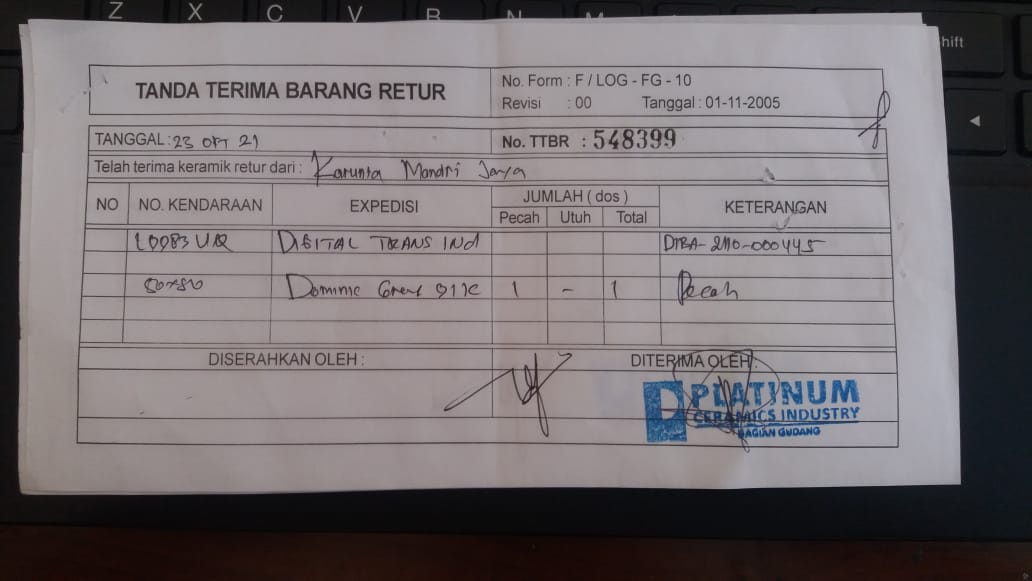 Z X C V B N M
shift
TANDA TERIMA BARANG RETUR
No. Form : F / LOG - FG - 10
Revisi : 00 Tanggal : 01-11-2005
TANGGAL : 23 OKT 21
No. TTBR : 548399
Telah terima keramik retur dari : Karunia Mandiri Jaya
NO NO. KENDARAAN EXPEDISI JUMLAH ( dos ) KETERANGAN
Pecah Utuh Total
DIGITAL TRANS IND
50x50 Dominic Grey 1 - 1 Pecah
DISERAHKAN OLEH : DITERIMA OLEH :
PLATINUM
CERAMICS INDUSTRY
BAGIAN GUDANG